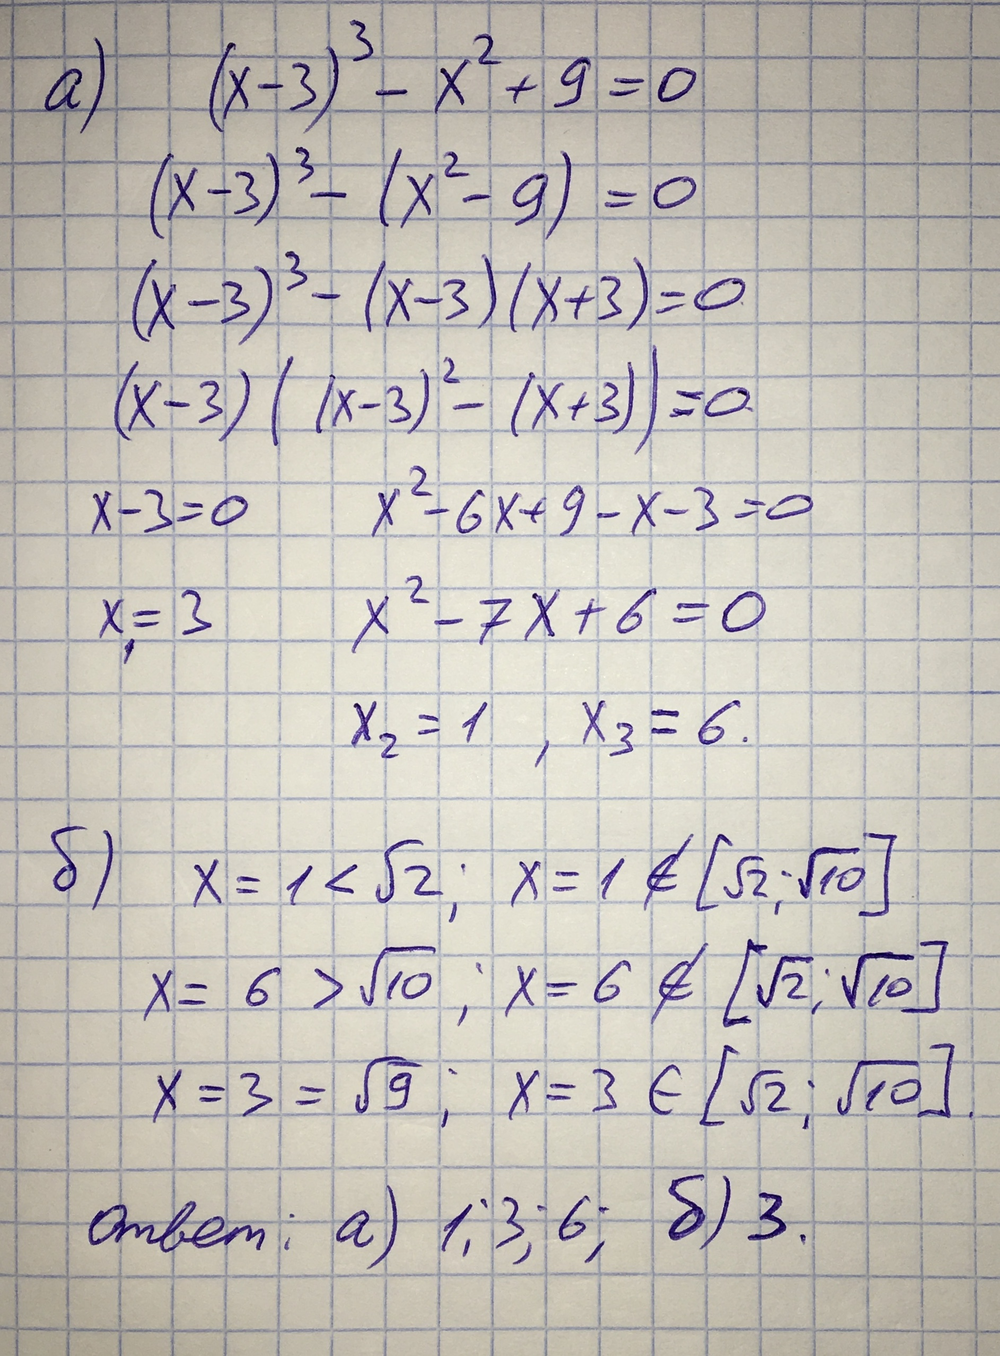 а) (x-3)³ - x² + 9 = 0
(x-3)³ - (x² - 9) = 0
(x-3)³ - (x-3)(x+3) = 0
(x-3)((x-3)² - (x+3)) = 0
x-3=0 x²-6x+9-x-3=0
x₁=3 x²-7x+6=0
x₂=1, x₃=6.
б) x=1<√2; x=1∉[√2;√10]
x=6>√10; x=6∉[√2;√10]
x=3=√9; x=3∈[√2;√10].
ответ: а) 1;3;6; б) 3.